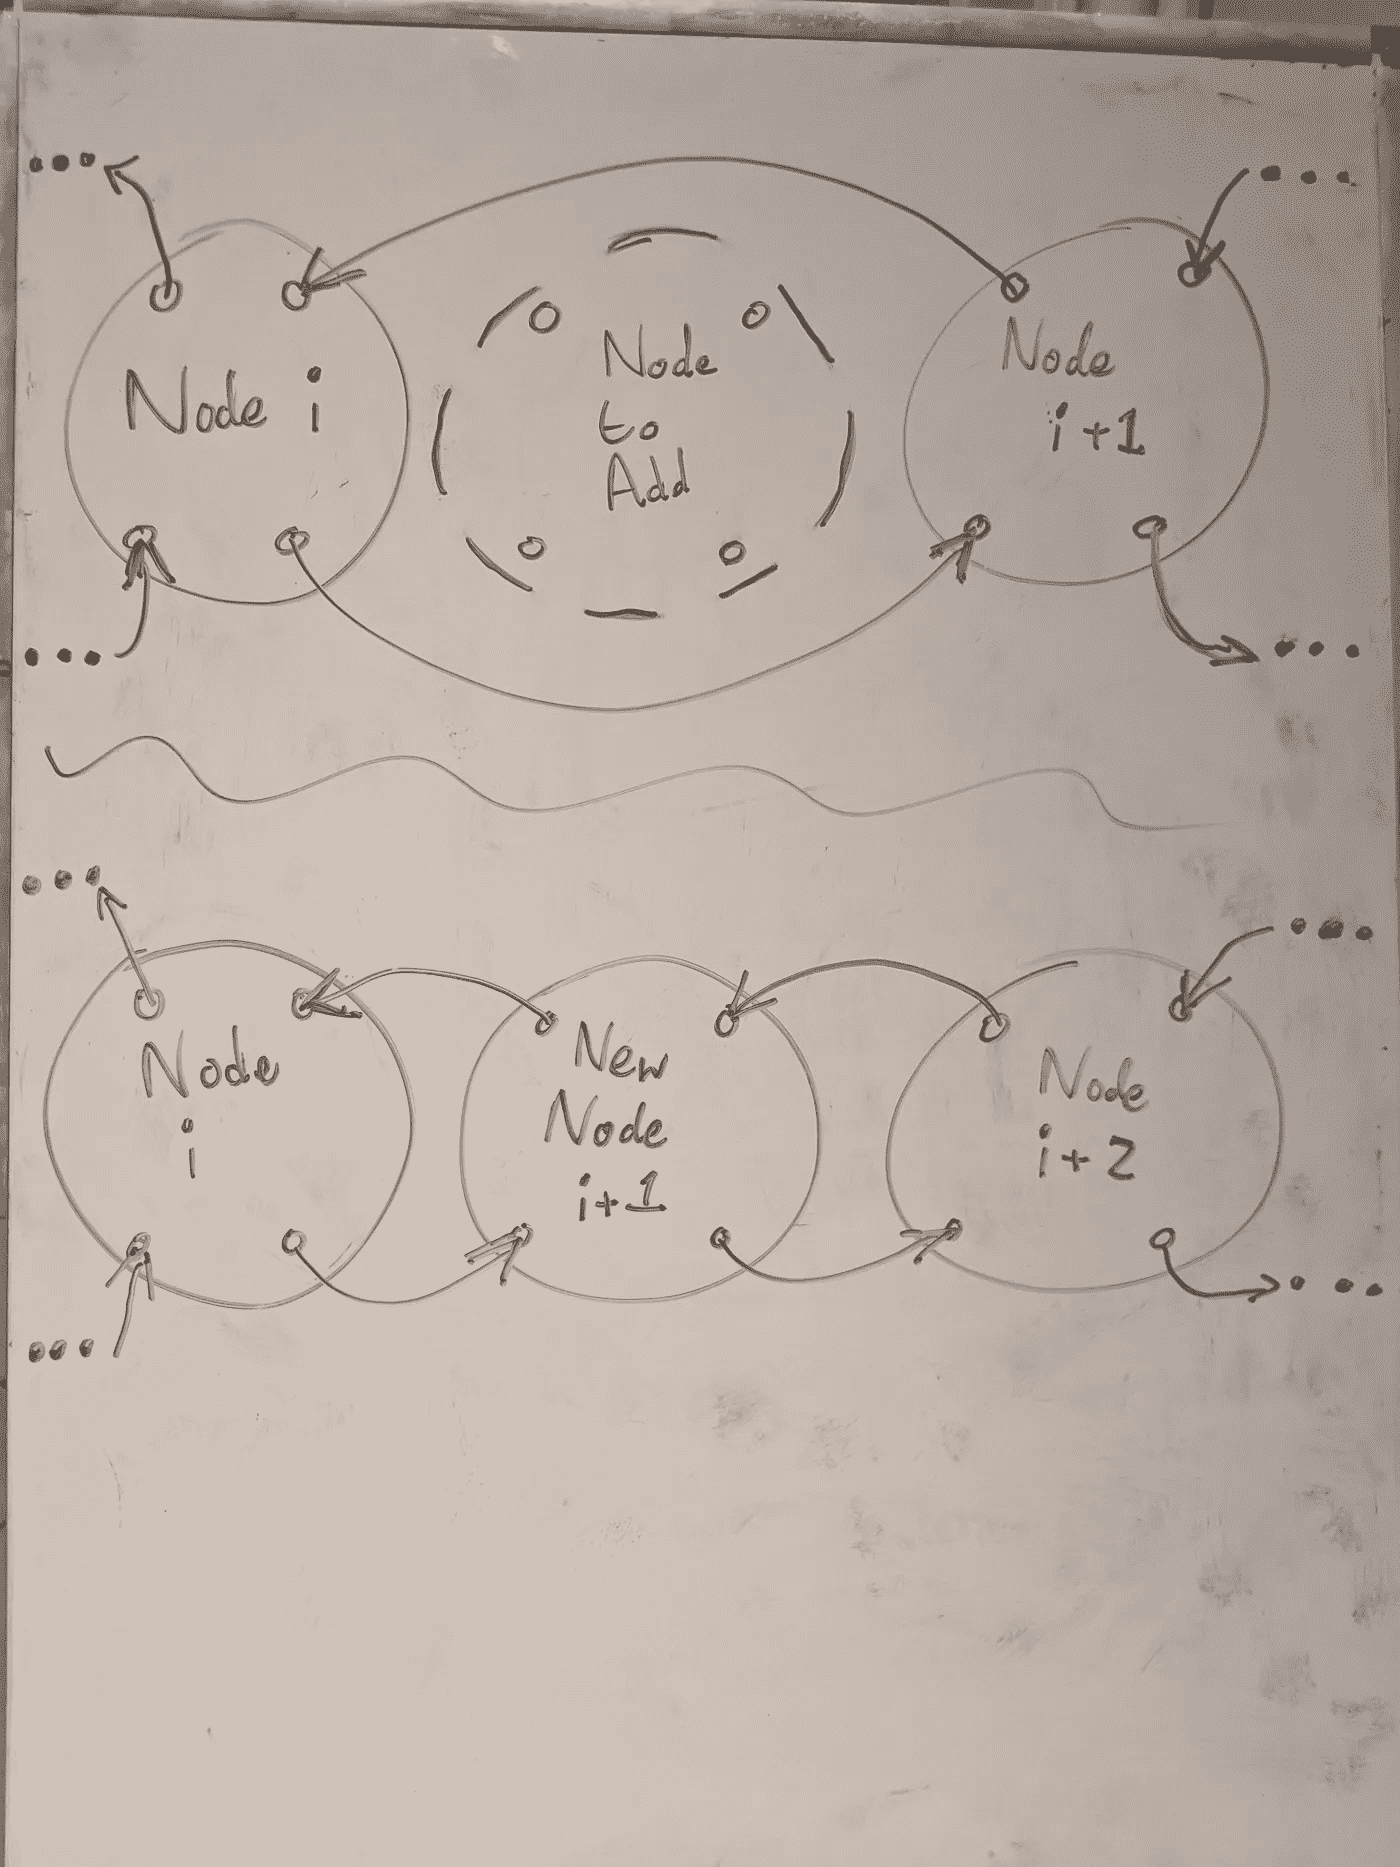 Node i
Node
to
Add
Node
i+1
Node
i
New
Node
i+1
Node
i+2